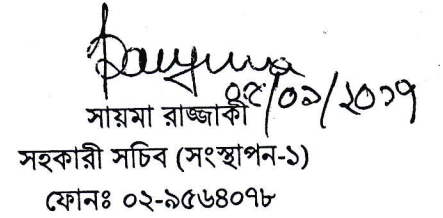 ০৫/০১/২০১৭
সায়মা রাজ্জাকী
সহকারী সচিব (সংস্থাপন-১)
ফোনঃ ০২-৯৫৬৪০৭৮